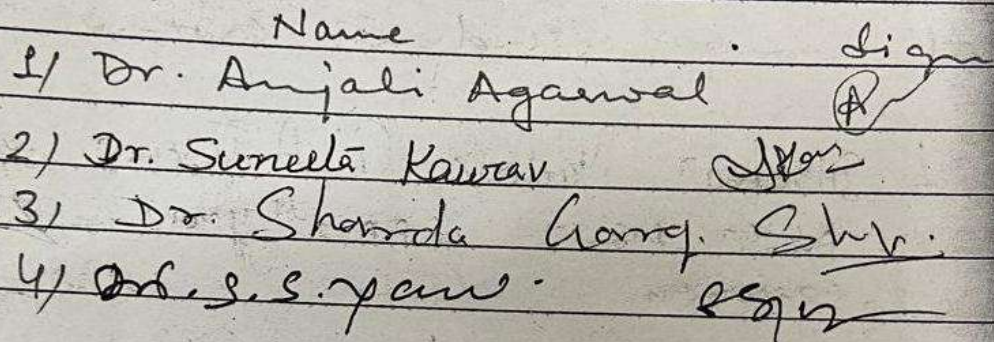 Name Sign
1/ Dr. Anjali Agarwal
2) Dr. Suneeta Kaurav
3) Dr. Sharda Garg. Sh.
4) Dr. S. S.